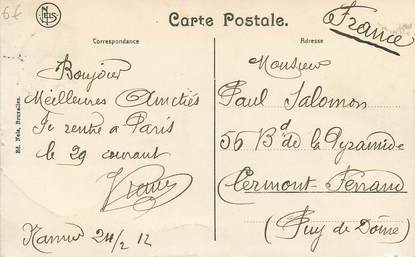 6€
NELS
Carte Postale.
France
Correspondance
Adresse
Bonjour
Meilleures Amitiés
Je rentre à Paris
le 29 courant
Namur 24/2 12
Monsieur
Paul Salomon
56 Bd de la Pyramide
Clermont-Ferrand
(Puy de Dôme)
Ed. Nels, Bruxelles.